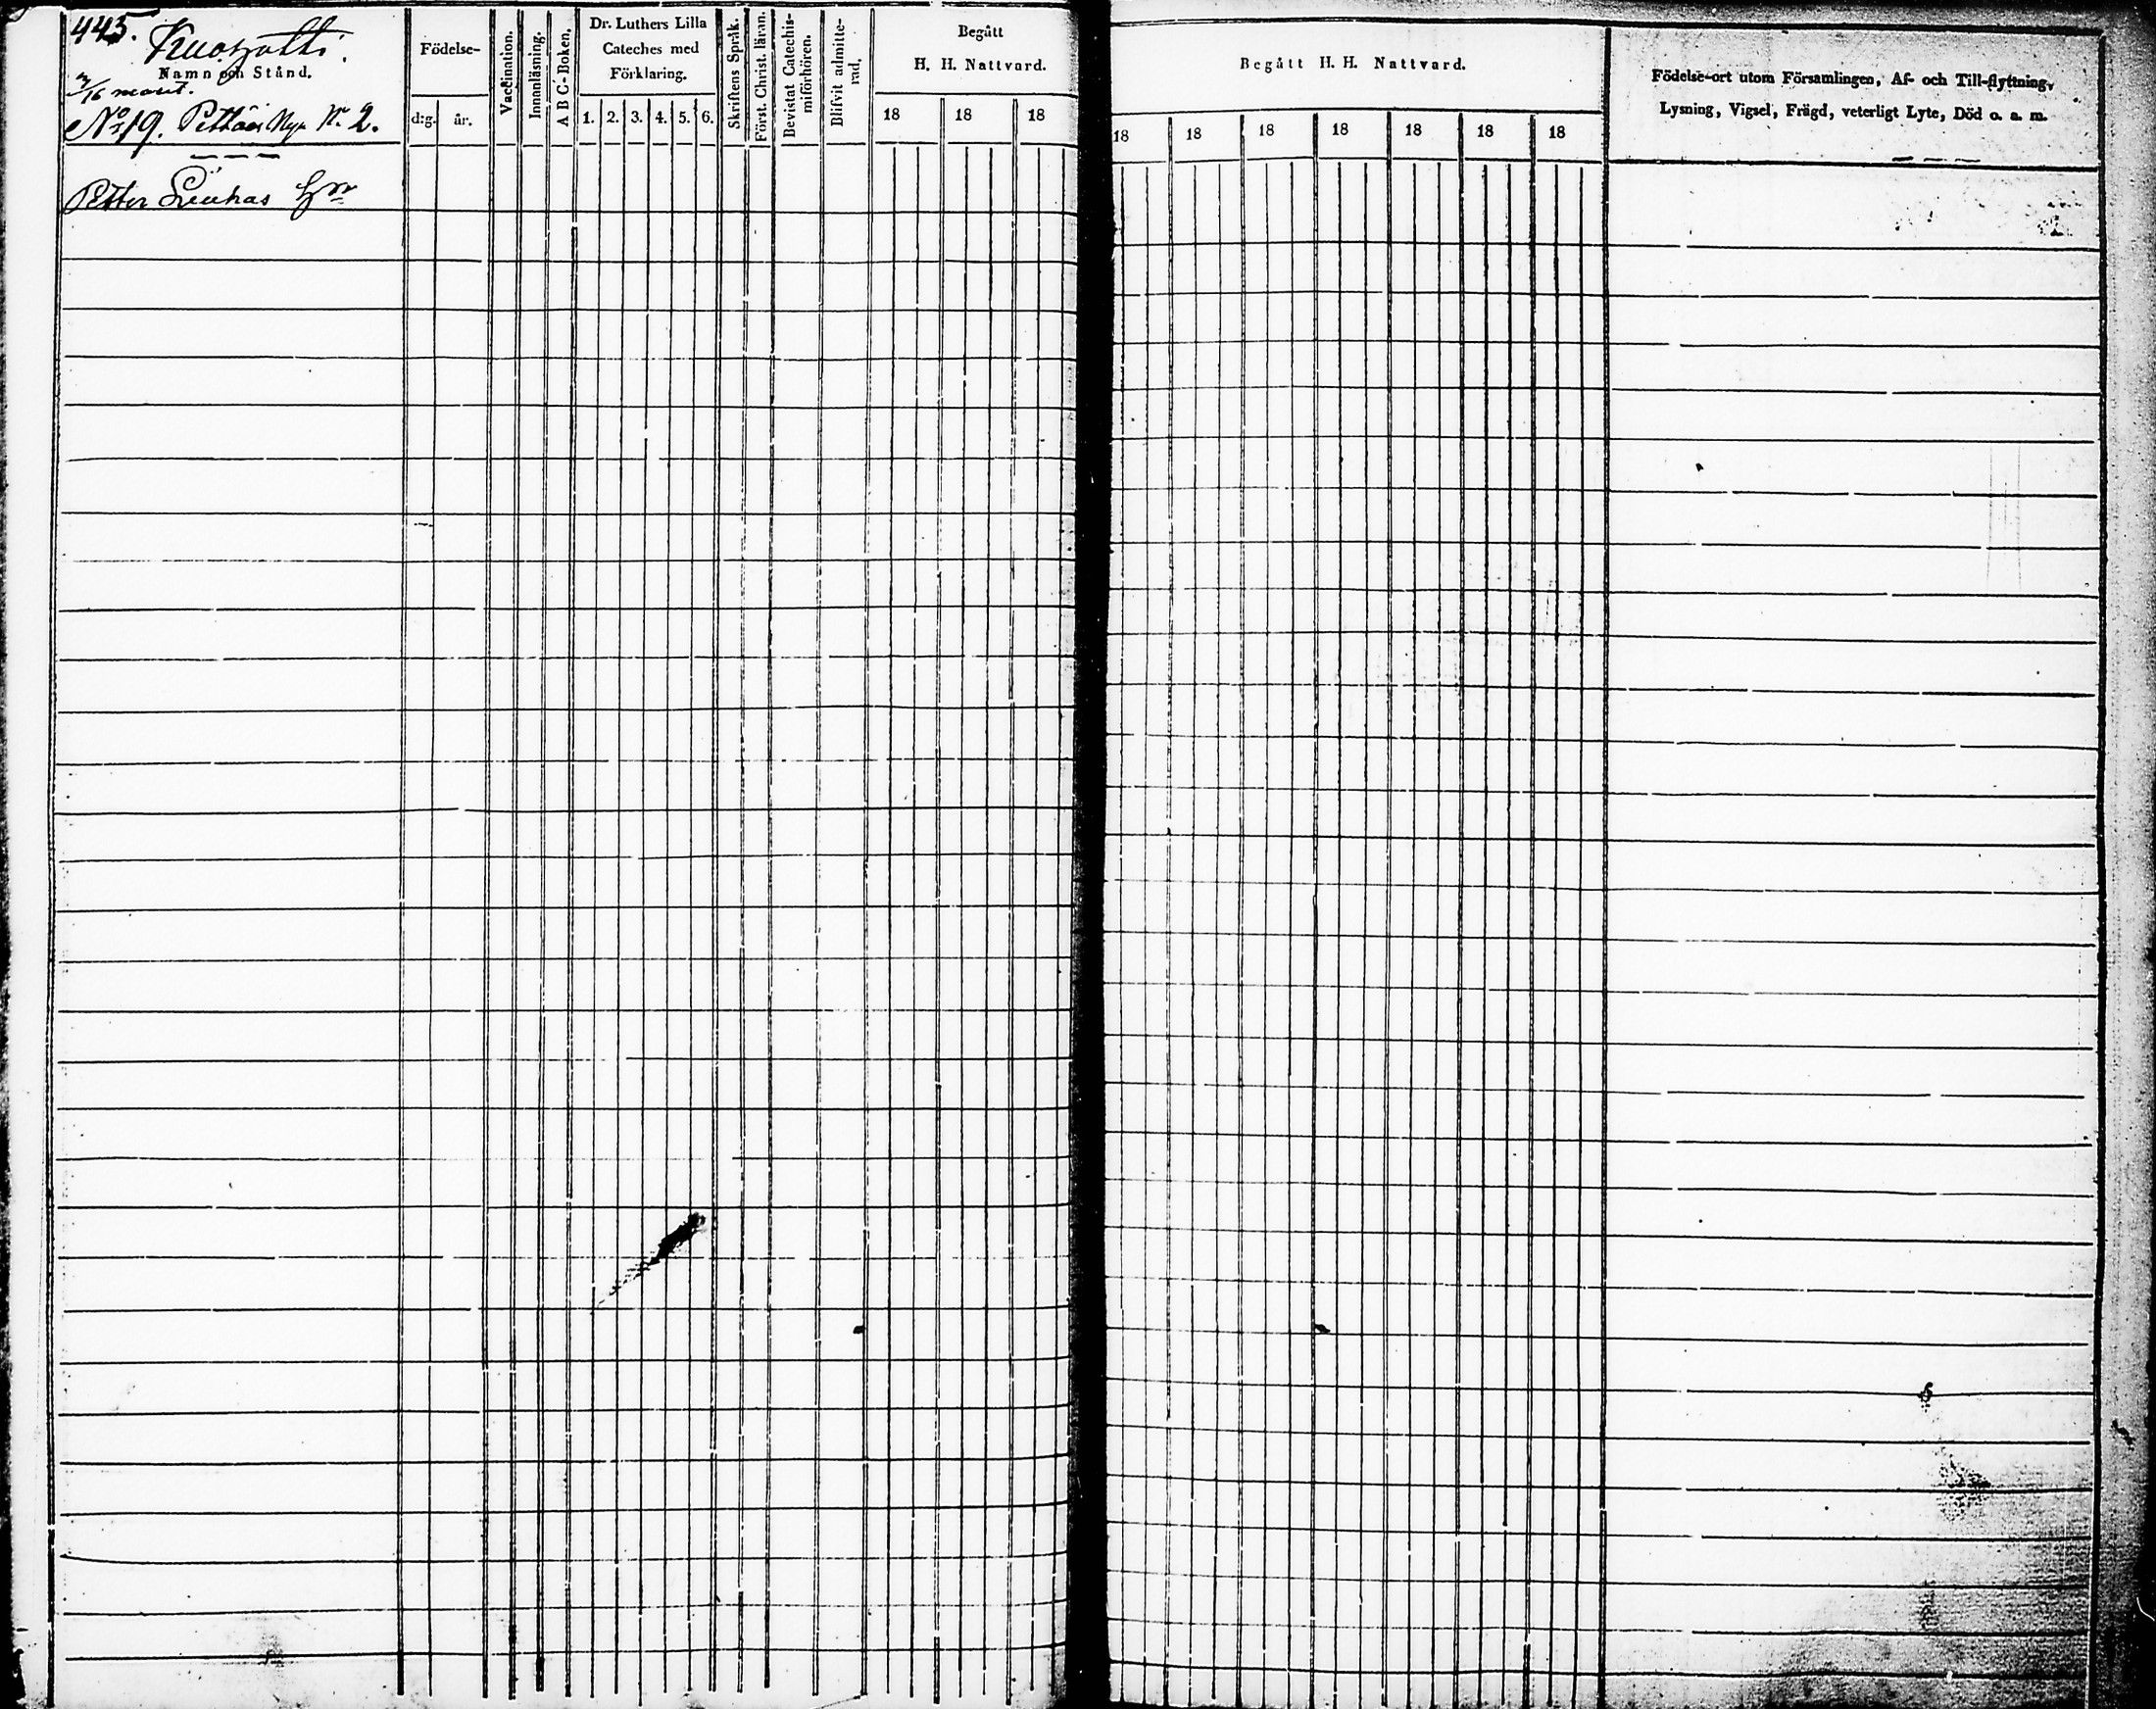 445.
Namn och Stånd.
2/16 mant.
No 19. No 2.
Petter
Födelse-
d:g. år.
Vaccination.
Innanläsning.
A B C-Boken.
Dr. Luthers Lilla
Cateches med
Förklaring.
1. 2. 3. 4. 5. 6.
Skriftens Språk.
Först. Christ. läran.
Bevistat Catechis-
miförhören.
Blifvit admitte-
rad.
Begått
H. H. Nattvard.
18 18 18
Begått H. H. Nattvard.
18 18 18 18 18 18 18
Födelse-ort utom Församlingen, Af- och Till-flyttning,
Lysning, Vigsel, Frägd, veterligt Lyte, Död o. s. m.